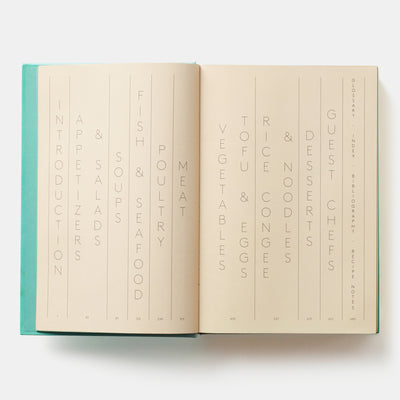 INTRODUCTION
APPETIZERS
& SALADS
SOUPS
FISH & SEAFOOD
POULTRY
MEAT
VEGETABLES
TOFU & EGGS
RICE CONGEE
& NOODLES
DESSERTS
GUEST CHEFS
GLOSSARY · INDEX · BIBLIOGRAPHY · RECIPE NOTES